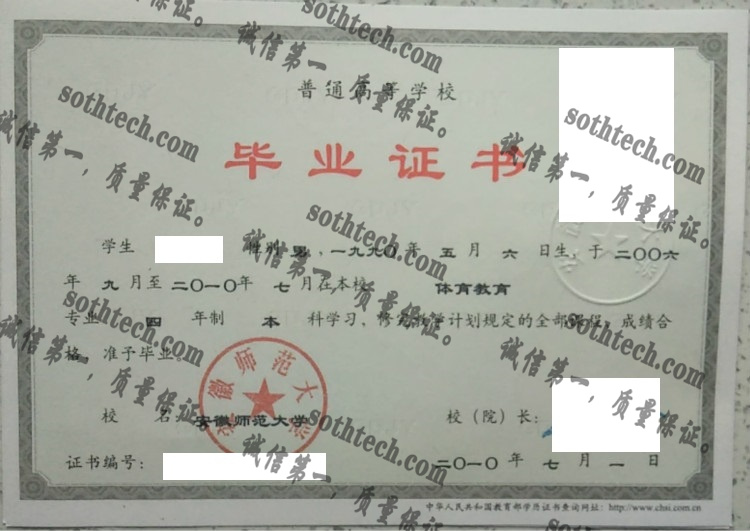 普通高等学校
毕业证书
学生 性别 男，一九九〇年 五 月 六 日生，于 二〇〇六
年 九 月至 二〇一〇年 七 月在本校 体育教育
专业 四 年制 本 科学习，修完教学计划规定的全部课程，成绩合
格，准予毕业。
校 名：安徽师范大学
校（院）长：
证书编号：
二〇一〇 年 七 月 一 日
中华人民共和国教育部学历证书查询网址：http://www.chsi.com.cn
安徽师范大学
sothtech.com
诚信第一，质量保证。
sothtech.com
诚信第一，质量保证。
sothtech.com
诚信第一，质量保证。
sothtech.com
诚信第一，质量保证。
sothtech.com
诚信第一，质量保证。
sothtech.com
诚信第一，质量保证。
sothtech.com
诚信第一，质量保证。
sothtech.com
诚信第一，质量保证。